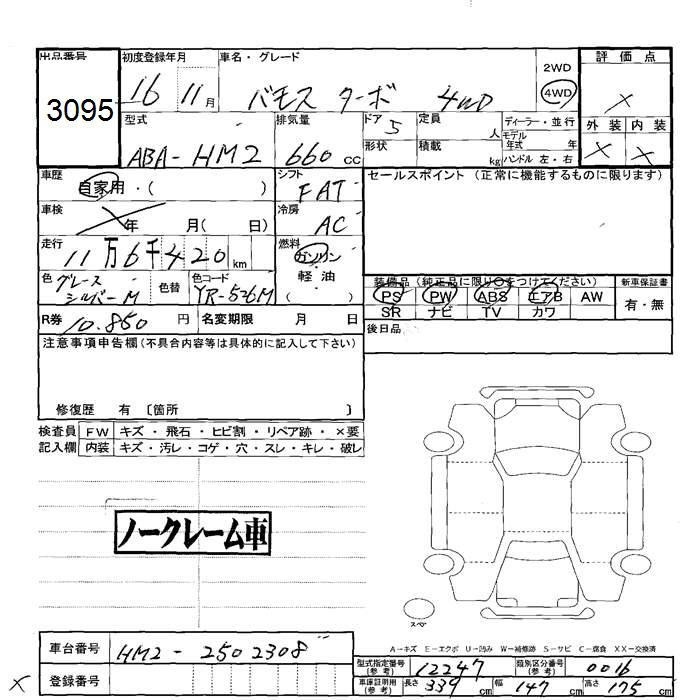 出品番号 初度登録年月 車名・グレード 評価点
3095 16 11月 バモス ターボ 4WD 2WD 4WD ×
型式 排気量 ドア 定員 ディーラー・並行 外装 内装
ABA-HM2 660cc 5 人 モデル年式 年 × ×
形状 積載 kg ハンドル 左・右
車歴 シフト セールスポイント (正常に機能するものに限ります)
自家用・( ) FAT
車検 冷房
年 月( 日) AC
走行 燃料
11万6千420km ガソリン
軽油
( )
色 色替 色コード
グレース
シルバーM YR-536M
装備品 (純正品に限り○をつけてください) 新車保証書
PS PW ABS エアB AW 有・無
SR ナビ TV カワ
R券 10.850円 名変期限 月 日 後日品
注意事項申告欄(不具合内容等は具体的に記入して下さい)
修復歴 有 〔箇所 〕
検査員 FW キズ・飛石・ヒビ割・リペア跡・×要
記入欄 内装 キズ・汚レ・コゲ・穴・スレ・キレ・破レ
ノークレーム車
スペア
A-キズ E-エクボ U-凹み W-補修跡 S-サビ C-腐食 XX-交換済
車台番号 HM2-2502308
型式指定番号(参考) 12247 類別区分番号(参考) 0016
登録番号
車庫証明用(参考) 長さ 339cm 幅 147cm 高さ 175cm
×